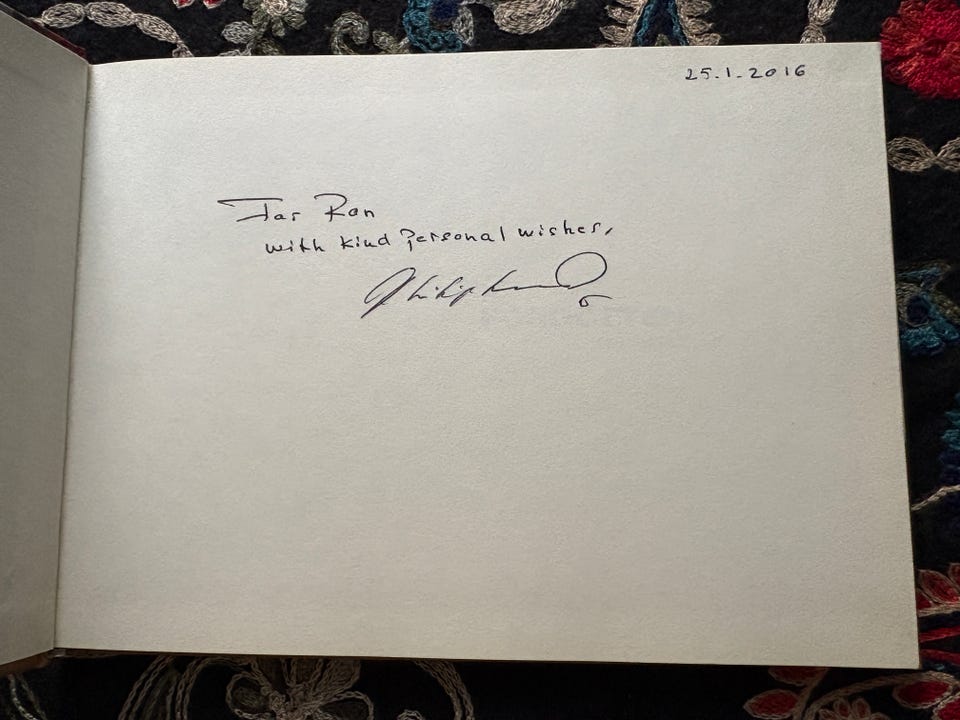 25.1.2016
For Ron
with kind personal wishes,
Philip